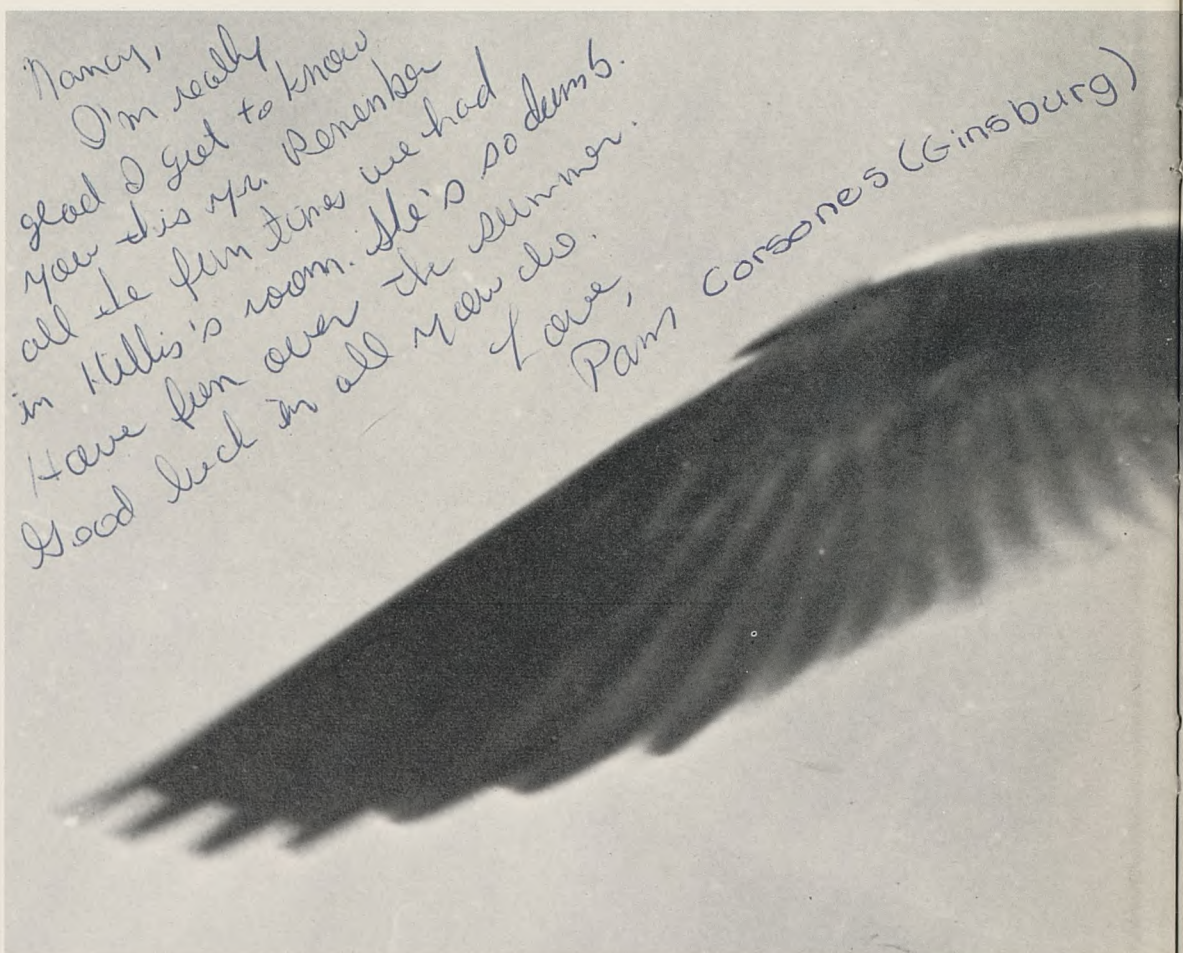 Nancy,
I'm really
glad I got to know
you this yr. Remember
all the fun times we had
in Hillis's room. She's so dumb.
Have fun over the summer.
Good luck in all you do.
Love,
Pam Corsones (Ginsburg)